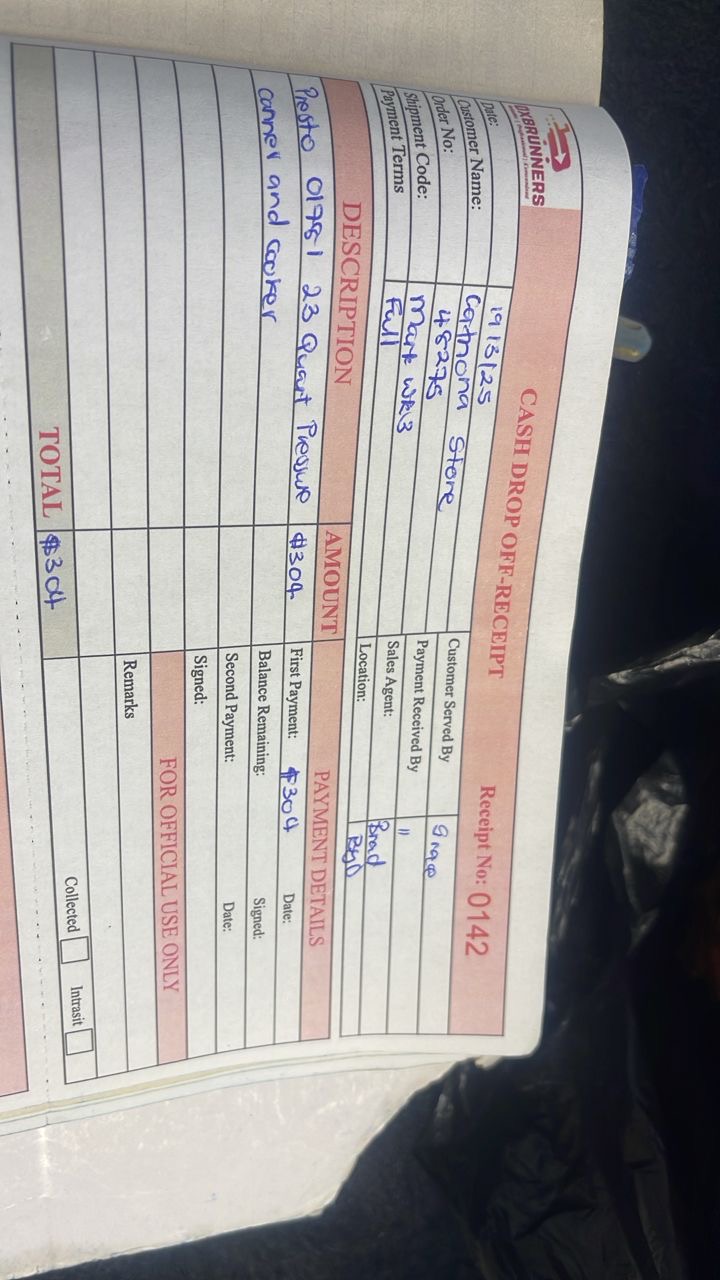 OXBRUNNERS
CASH DROP OFF-RECEIPT
Receipt No: 0142
Date: 19/3/25
Customer Name: Catmona Store
Order No: 48275
Shipment Code: Mark WK3
Payment Terms Full
Customer Served By
Payment Received By "
Sales Agent: Brad
Location:
DESCRIPTION AMOUNT PAYMENT DETAILS
Presto 01781 23 Quart Pressure $304
canner and cooker
First Payment: $304 Date:
Balance Remaining: Signed:
Second Payment: Date:
Signed:
FOR OFFICIAL USE ONLY
Remarks
TOTAL $304
Collected Intrasit